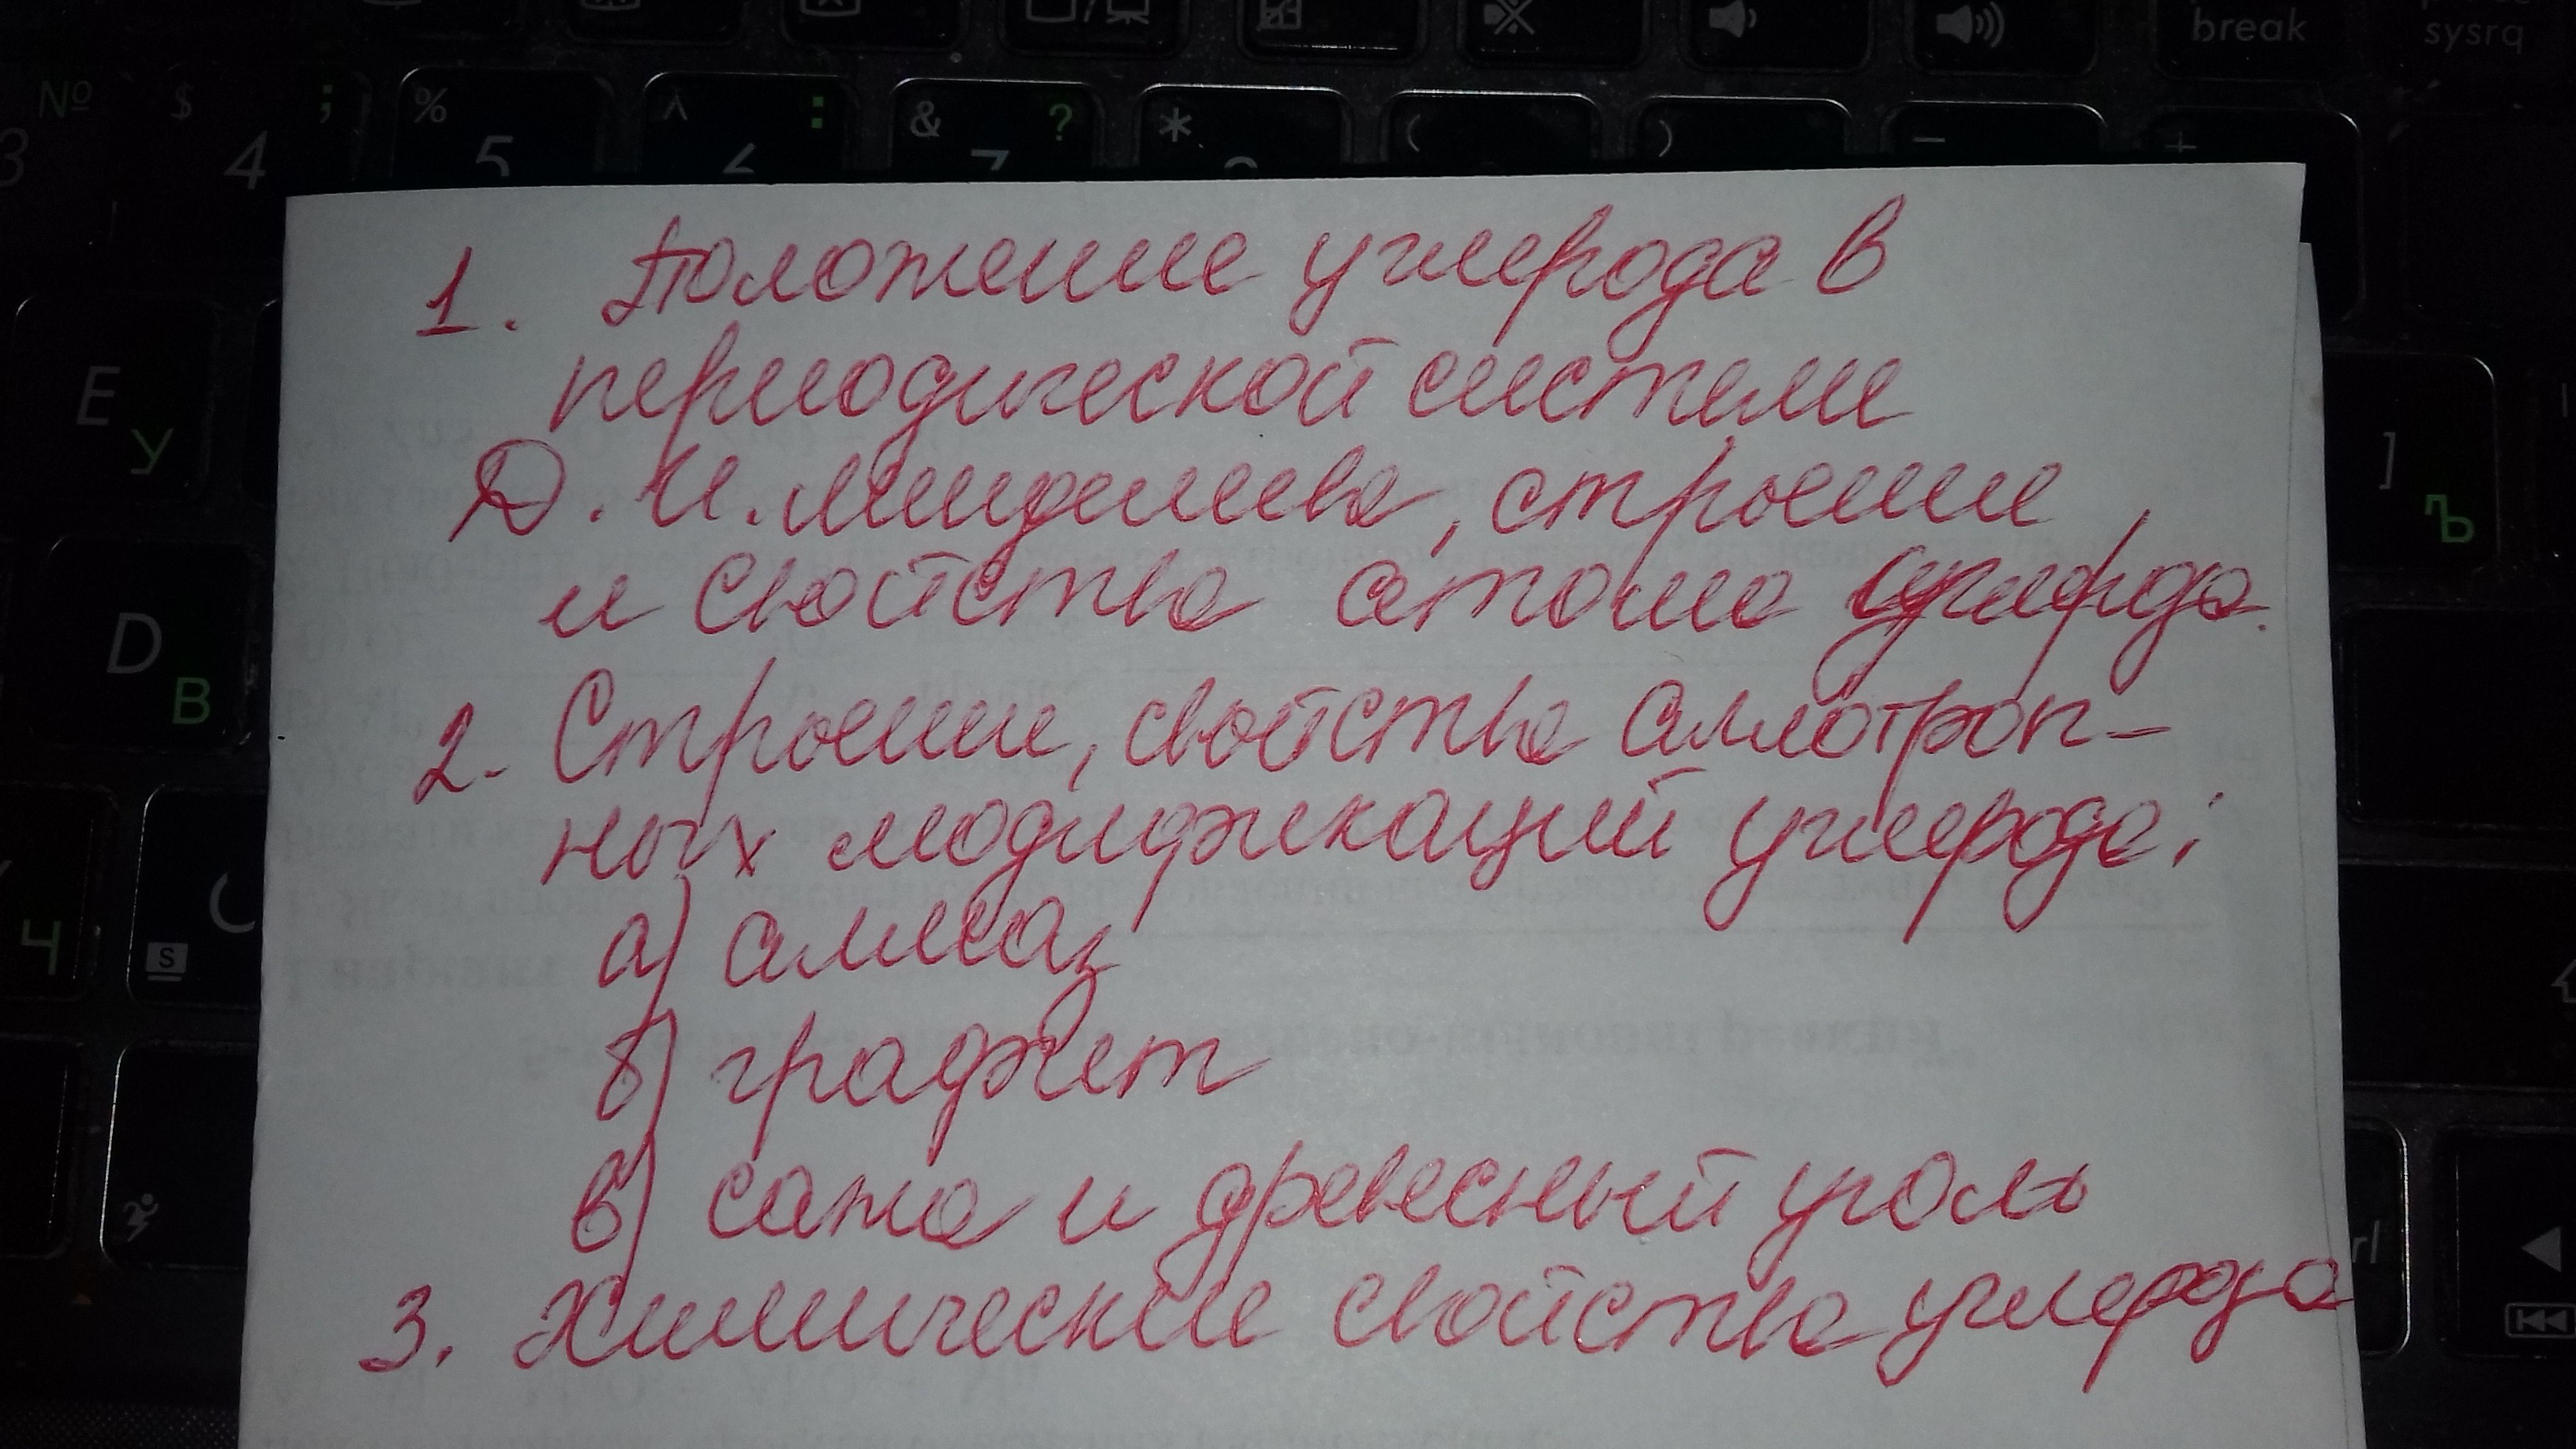 break
sysrq
№ $ ; % ^ : & ? * ( ) _ +
3 4 5 6 7
1. Положение углерода в
периодической системе
E У
Д. И. Менделеева, строение
] Ъ
и свойства атома углерода.
D В
2. Строение, свойства аллотроп-
ных модификаций углерода:
а) алмаз
Ч C S
б) графит
в) сажа и древесный уголь
3. Химические свойства углерода
rl